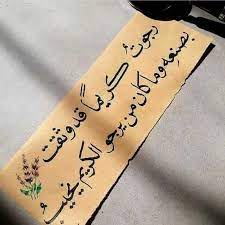 رجوتُ كريمًا قد وثقت
بصنعه وما كان من يرجو الكريم يخيبُ